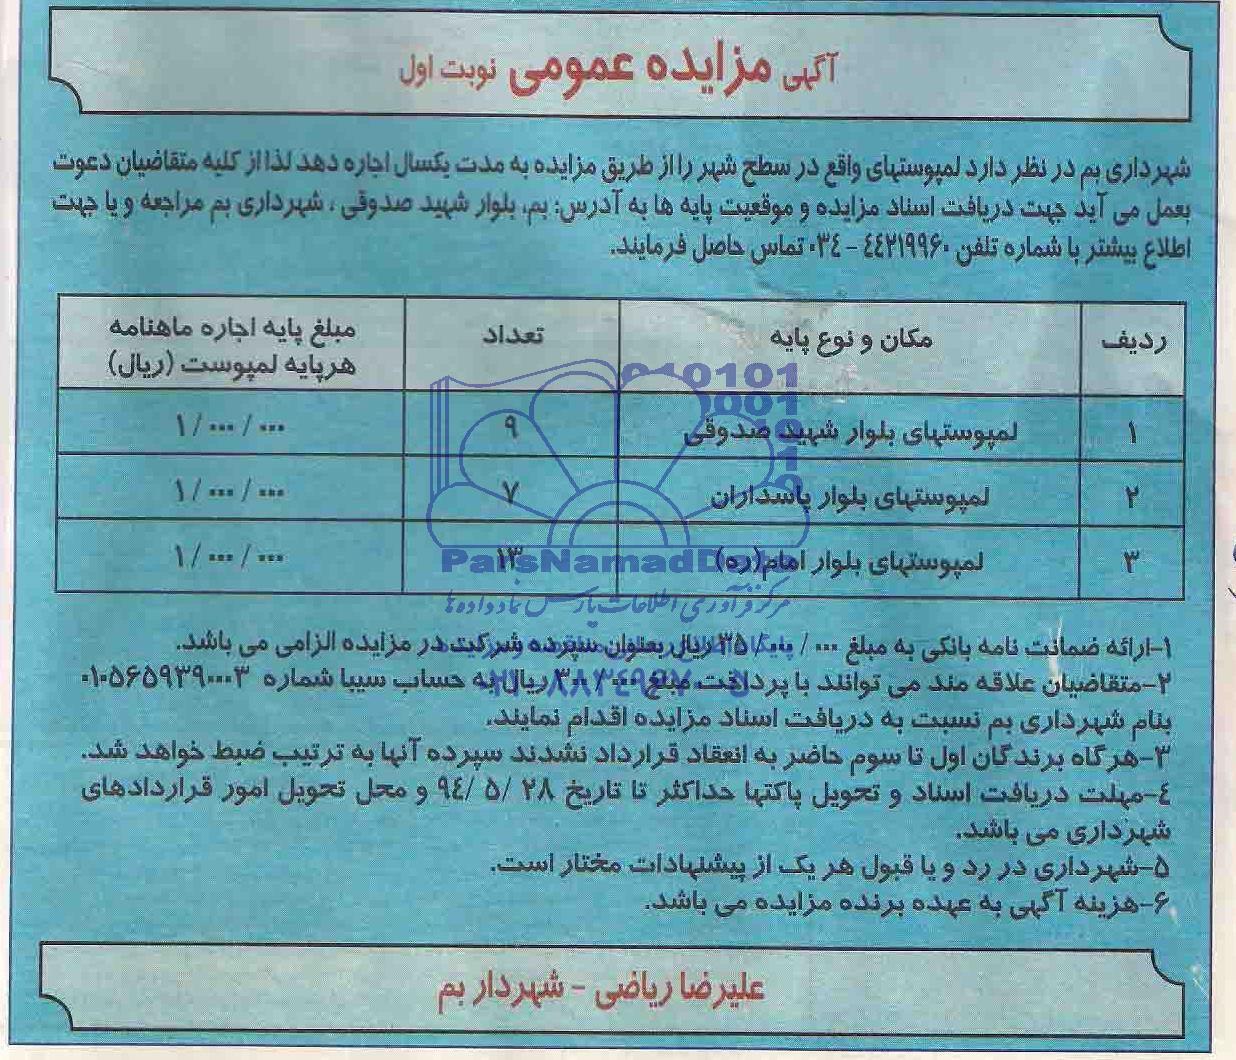 آگهی مزایده عمومی نوبت اول
شهرداری بم در نظر دارد لمپوستهای واقع در سطح شهر را از طریق مزایده به مدت یکسال اجاره دهد لذا از کلیه متقاضیان دعوت
بعمل می آید جهت دریافت اسناد مزایده و موقعیت پایه ها به آدرس: بم، بلوار شهید صدوقی ، شهرداری بم مراجعه و یا جهت
اطلاع بیشتر با شماره تلفن ۴۴۲۱۹۹۶۰ - ۰۳۴ تماس حاصل فرمایند.
ردیف مکان و نوع پایه تعداد مبلغ پایه اجاره ماهنامه
هرپایه لمپوست (ریال)
۱ لمپوستهای بلوار شهید صدوقی ۹ ۱/۰۰۰/۰۰۰
۲ لمپوستهای بلوار پاسداران ۷ ۱/۰۰۰/۰۰۰
۳ لمپوستهای بلوار امام(ره) ۱۳ ۱/۰۰۰/۰۰۰
ParsNamadData
مرکز فرآوری اطلاعات پارس نماد داده ها
۱-ارائه ضمانت نامه بانکی به مبلغ ۳۵/۰۰۰/۰۰۰ ریال بعنوان سپرده شرکت در مزایده الزامی می باشد.
۲-متقاضیان علاقه مند می توانند با پرداخت مبلغ ۳۰۰/۰۰۰ ریال به حساب سیبا شماره ۰۱۰۵۶۵۹۳۹۰۰۰۳
بنام شهرداری بم نسبت به دریافت اسناد مزایده اقدام نمایند.
۳-هرگاه برندگان اول تا سوم حاضر به انعقاد قرارداد نشدند سپرده آنها به ترتیب ضبط خواهد شد.
۴-مهلت دریافت اسناد و تحویل پاکتها حداکثر تا تاریخ ۲۸ /۵ /۹۴ و محل تحویل امور قراردادهای
شهرداری می باشد.
۵-شهرداری در رد و یا قبول هر یک از پیشنهادات مختار است.
۶-هزینه آگهی به عهده برنده مزایده می باشد.
علیرضا ریاضی - شهردار بم